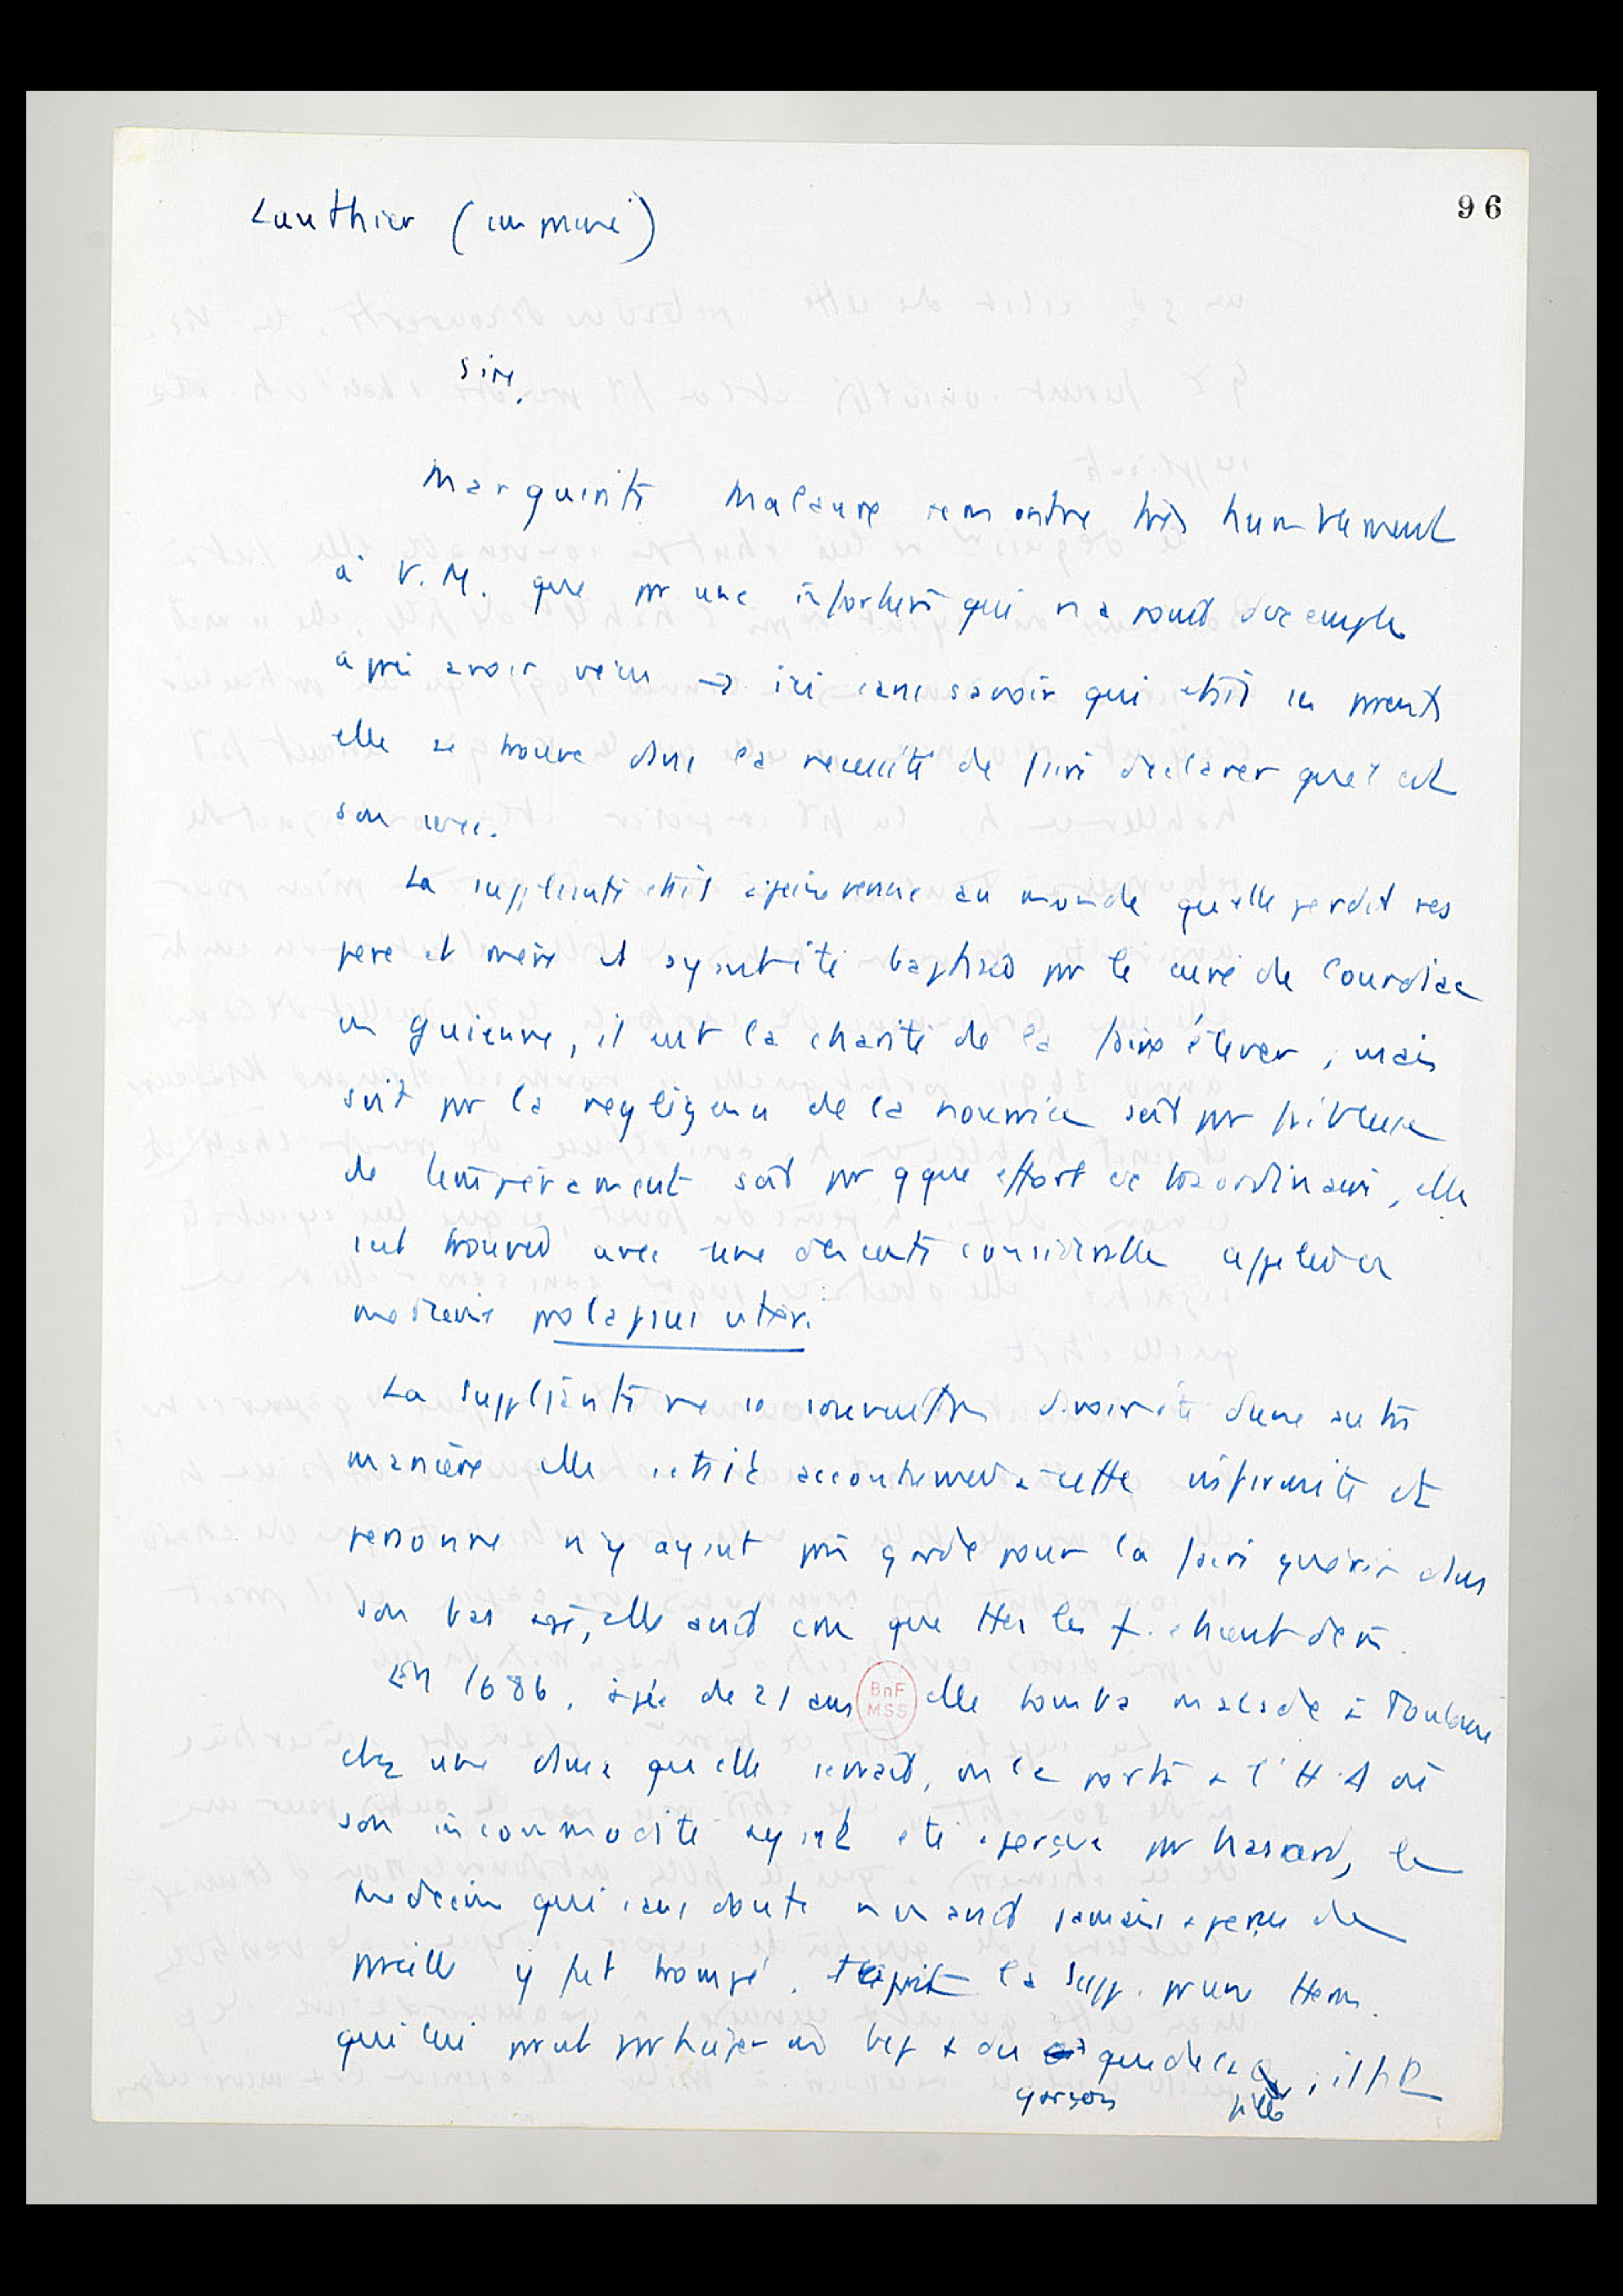 96
Lauthier (cu mine)
Sire,
Marguerite Malaure remontre très humblement
à V.M. que pr une infortune qui n'a point d'exemple
après avoir vécu → ici sans savoir qui etait ses parents
elle se trouve dans la necessité de faire declarer quel est
son sexe.
La suppliante etait à peine venue au monde quelle perdit ses
pere et mère et ayant été baptisée pr le curé de Pourdiac
en Guienne, il eut la charité de la faire élever, mais
soit pr la negligence de la nourrice soit pr faiblesse
de temperament soit pr qque effort extraordinaire, elle
est trouvée avec une descente considerable appelée en
medecine prolapsus uteri
La suppliante ne se souvient d'avoir été d'une autre
manière elle s'etait accoutumée à cette infirmité et
personne n'y ayant pris garde pour la faire guérir dans
son bas age, elle avait cru que ttes les f. etaient de m.
En 1686, agée de 21 ans elle tomba malade à Toulouse
BnF
MSS
chez une dame qu'elle servait, on la porta à l'H.D où
son incommodité ayant été aperçue pr hasard, le
medecin qui sans doute n'en avait jamais aperçu de
pareille y fut trompé, prit la supp. pr une Herm.
qui lui parut participer au bcp + du que de la , il fit
garçon fille